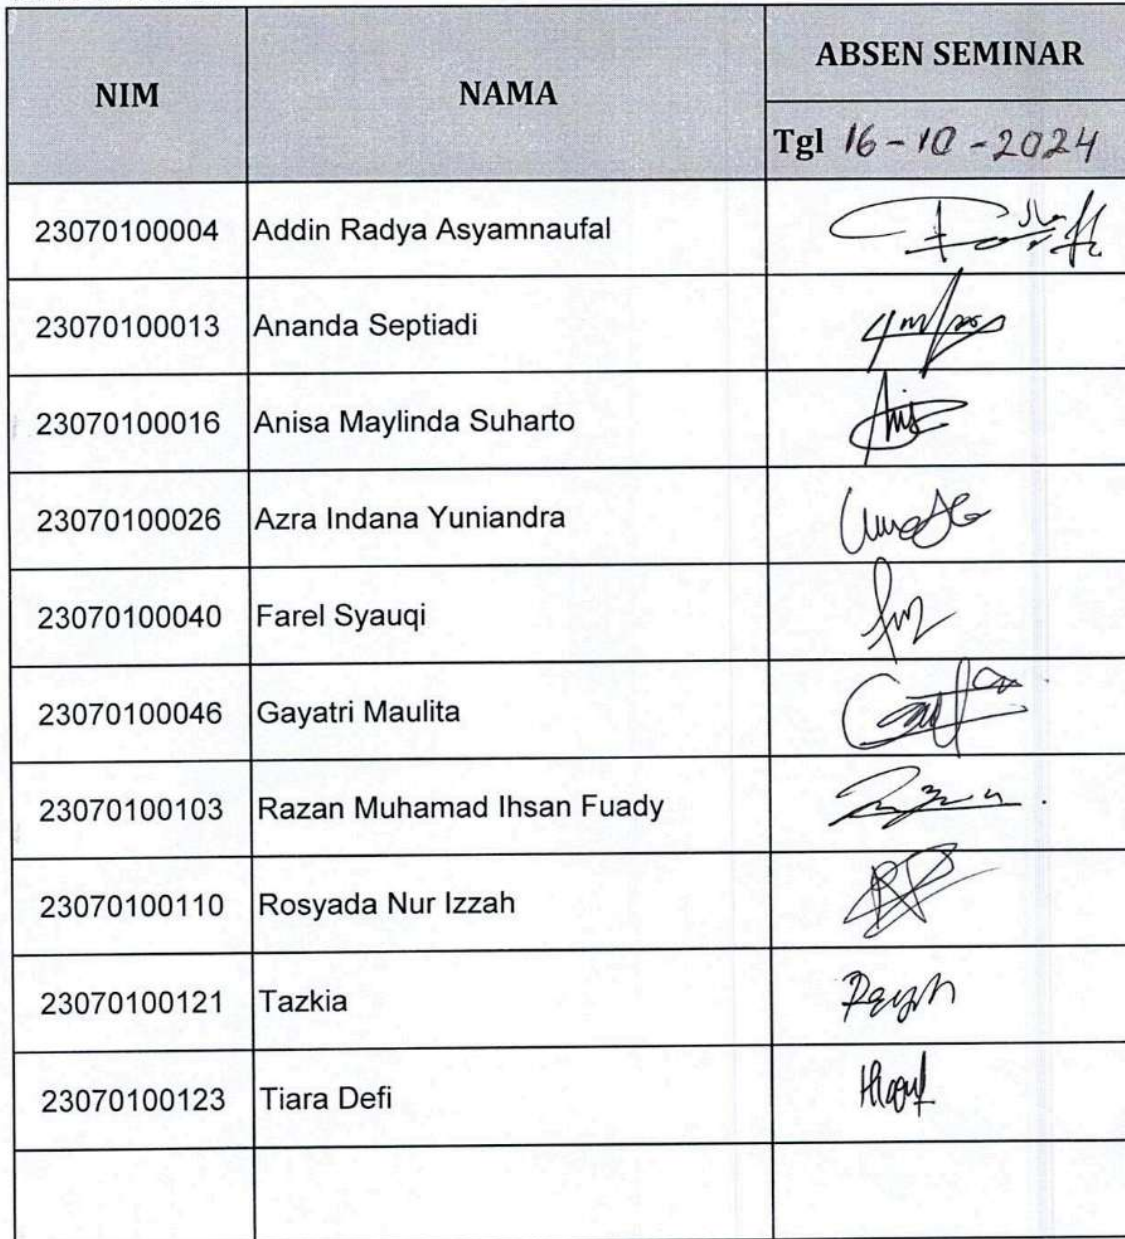 NIM NAMA ABSEN SEMINAR
Tgl 16-10-2024
23070100004 Addin Radya Asyamnaufal
23070100013 Ananda Septiadi
23070100016 Anisa Maylinda Suharto
23070100026 Azra Indana Yuniandra
23070100040 Farel Syauqi
23070100046 Gayatri Maulita
23070100103 Razan Muhamad Ihsan Fuady
23070100110 Rosyada Nur Izzah
23070100121 Tazkia
23070100123 Tiara Defi